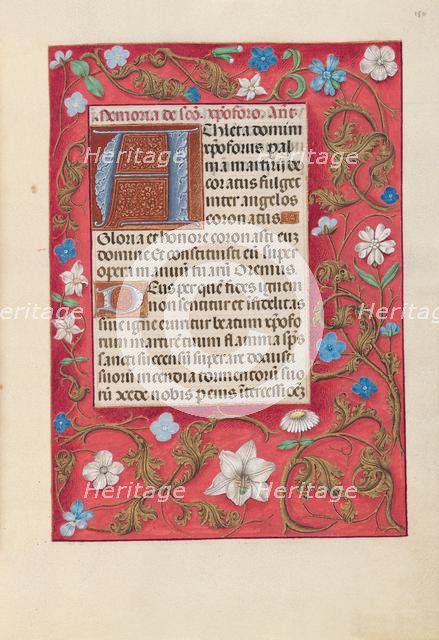 180
Memoria de sco. xpoforo. Ant
Athleta domini
xpoforus pal
mam martirii de
coratus fulget
inter angelos
coronatus
Gloria et honore coronasti eu
domine et constituisti eu super
opera manuum tuaru Oremus
Deus per que fides igni
non sentitur et infidelitas
sine igne uritur beatum xpofo
rum martirem tuum flamma sps
sancti succensu superare da
suoru incendia tormentoru
cede nobis p eius intercessi
Heritage Heritage Heritage
Heritage Heritage Heritage
Heritage Heritage Heritage